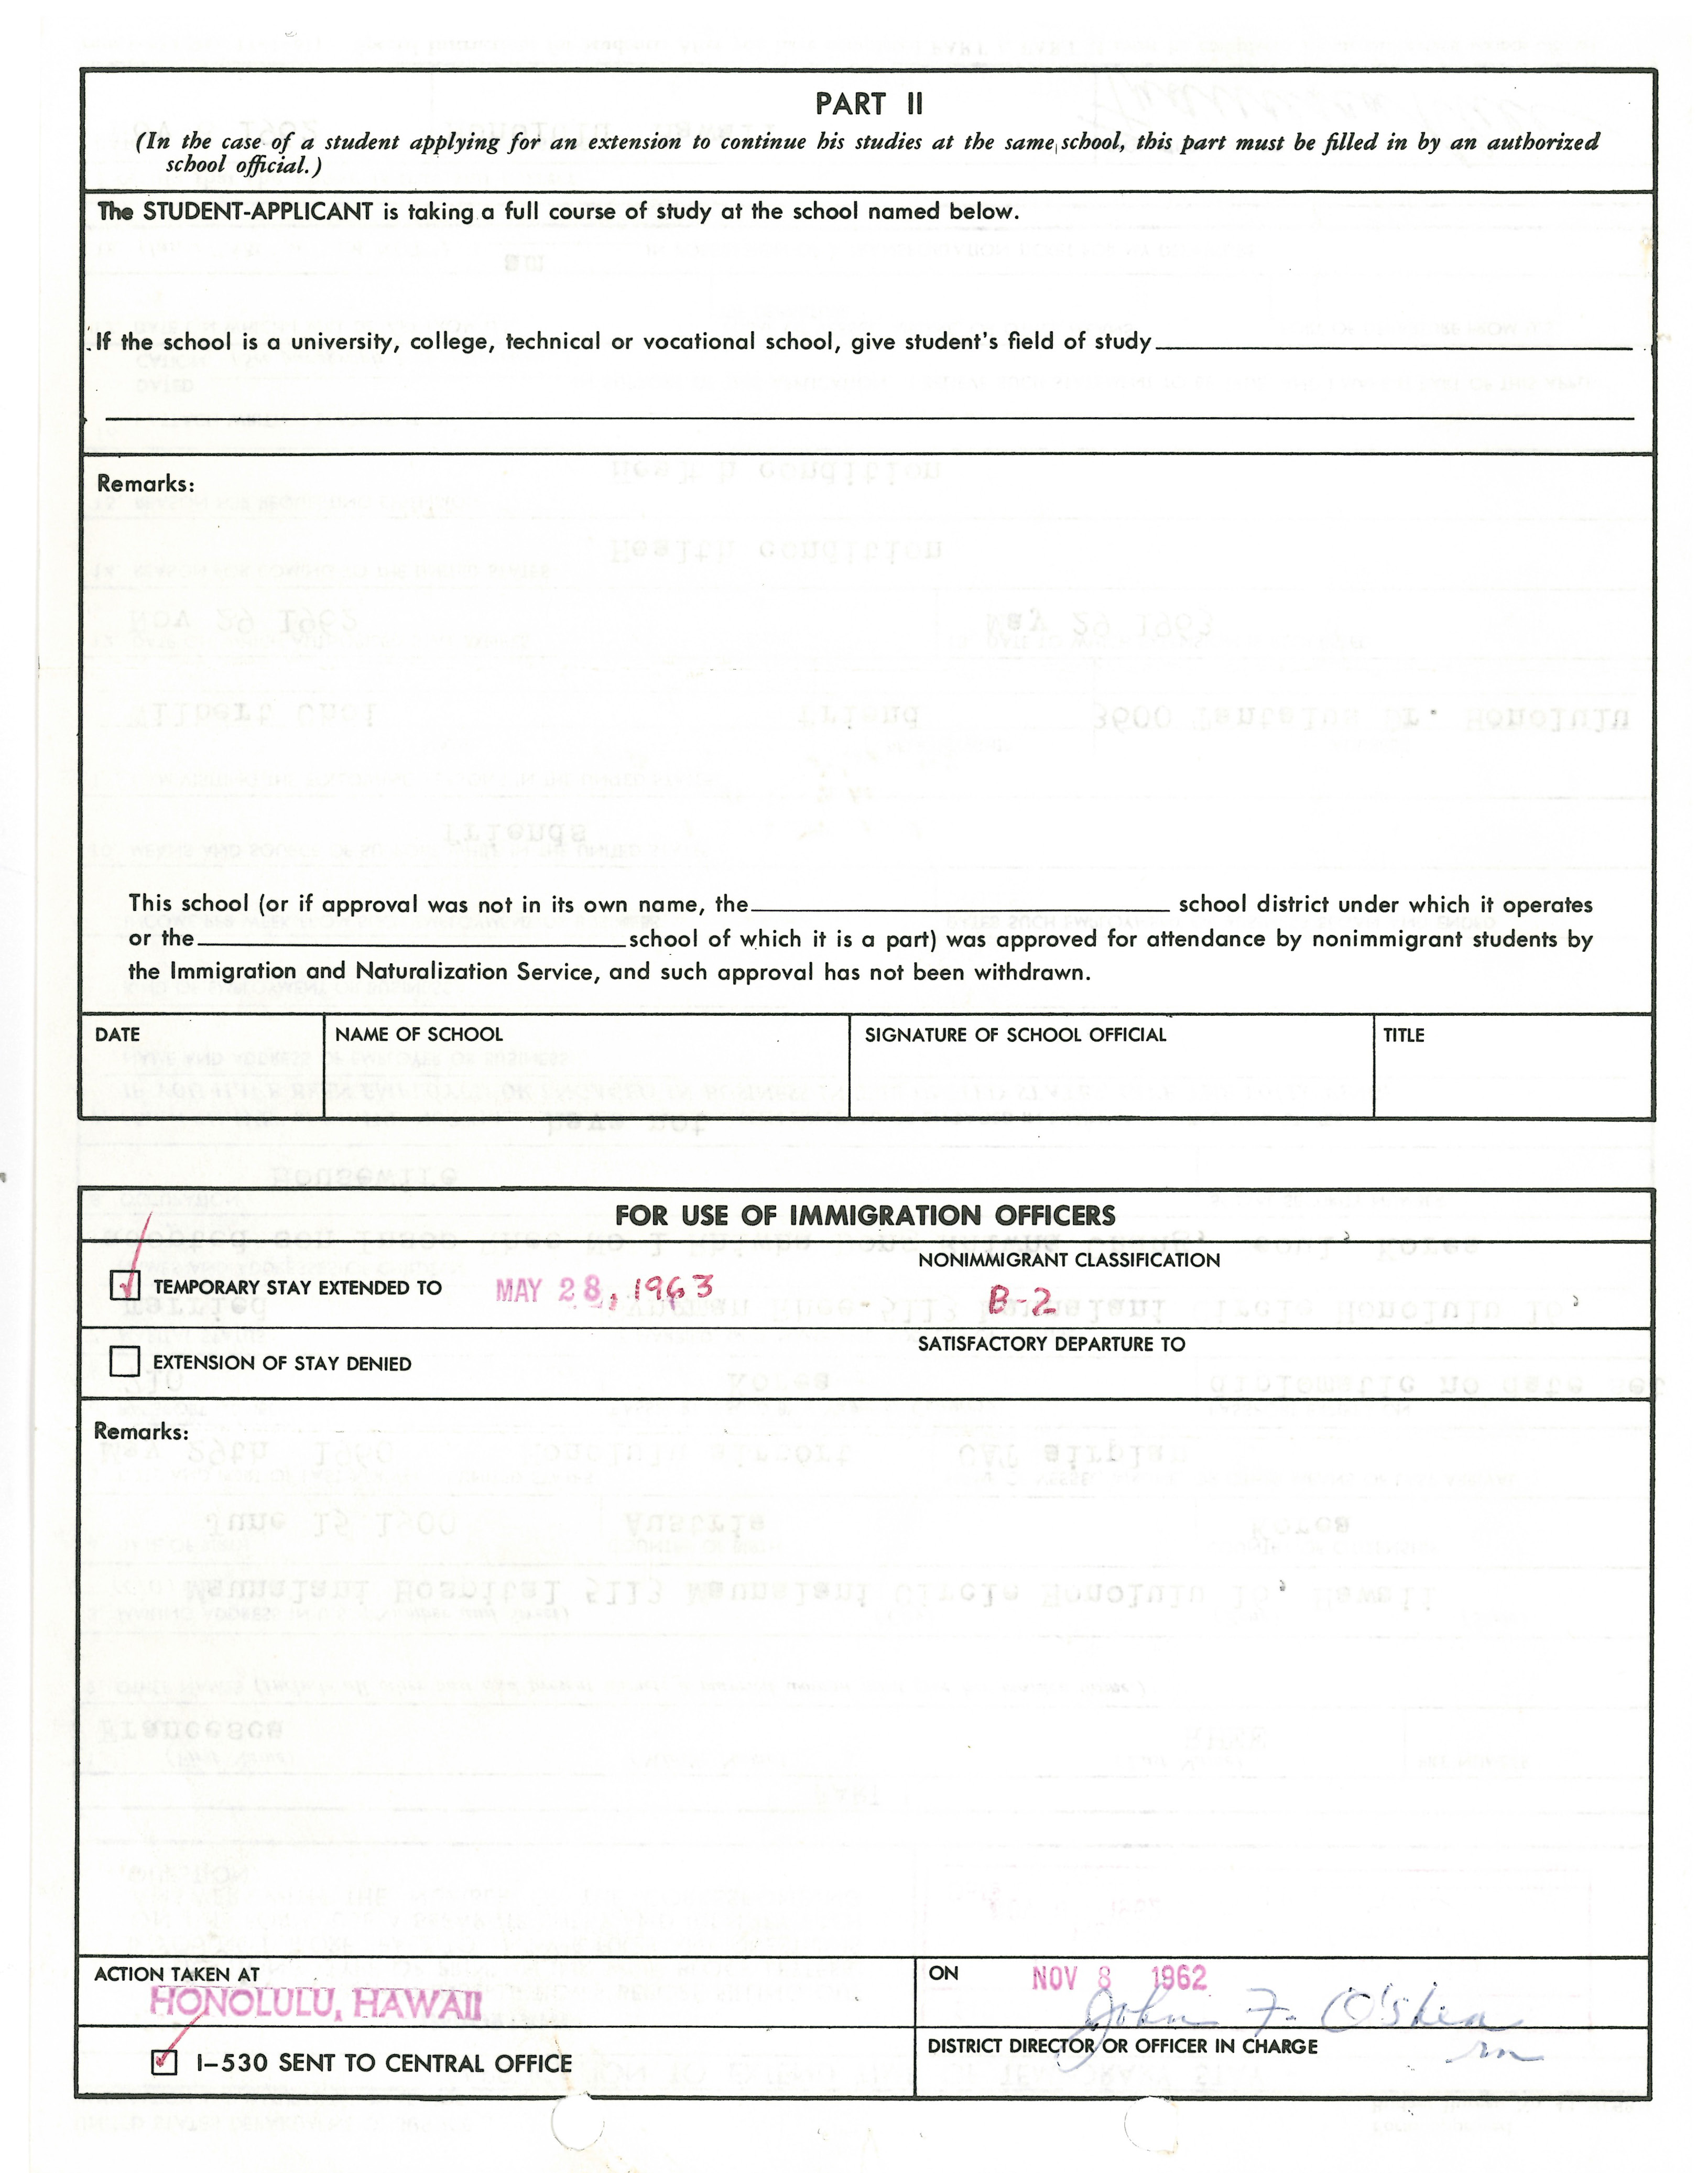 PART II
(In the case of a student applying for an extension to continue his studies at the same school, this part must be filled in by an authorized
school official.)
The STUDENT-APPLICANT is taking a full course of study at the school named below.
If the school is a university, college, technical or vocational school, give student's field of study
Remarks:
This school (or if approval was not in its own name, the school district under which it operates
or the school of which it is a part) was approved for attendance by nonimmigrant students by
the Immigration and Naturalization Service, and such approval has not been withdrawn.
DATE NAME OF SCHOOL SIGNATURE OF SCHOOL OFFICIAL TITLE
FOR USE OF IMMIGRATION OFFICERS
TEMPORARY STAY EXTENDED TO MAY 28, 1963
NONIMMIGRANT CLASSIFICATION
B-2
EXTENSION OF STAY DENIED
SATISFACTORY DEPARTURE TO
Remarks:
ACTION TAKEN AT
HONOLULU, HAWAII
ON NOV 8 1962
John F. O'Shea
DISTRICT DIRECTOR OR OFFICER IN CHARGE
I-530 SENT TO CENTRAL OFFICE